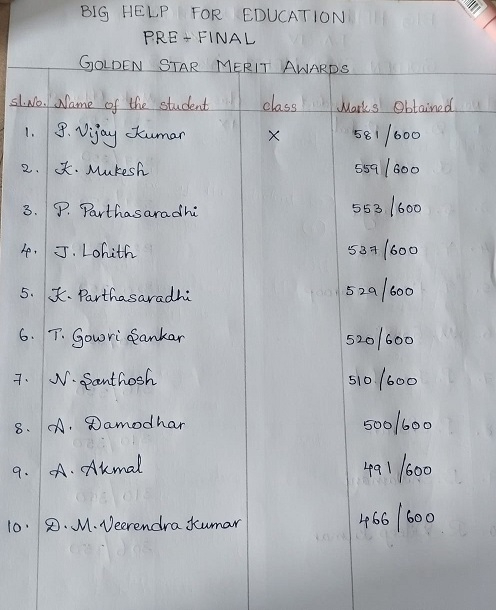 BIG HELP FOR EDUCATION
PRE - FINAL
GOLDEN STAR MERIT AWARDS
Sl.No. Name of the student class Marks Obtained
1. P. Vijay Kumar X 581/600
2. K. Mukesh 559/600
3. P. Parthasaradhi 553/600
4. J. Lohith 537/600
5. K. Parthasaradhi 529/600
6. T. Gowri Sankar 520/600
7. N. Santhosh 510/600
8. A. Damodhar 500/600
9. A. Akmal 491/600
10. D.M. Veerendra Kumar 466/600